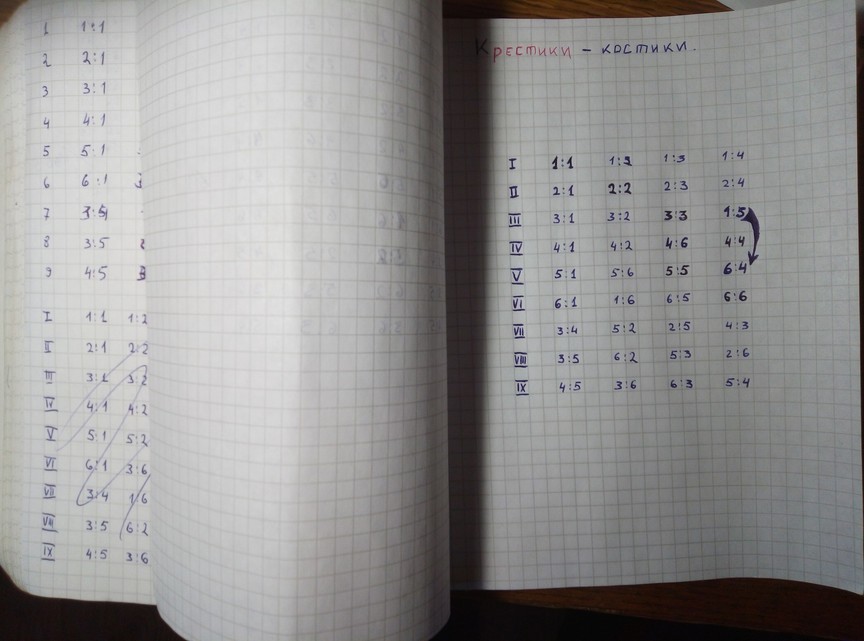 1 1:1
2 2:1
3 3:1
4 4:1
5 5:1
6 6:1
7
8 3:5
9 4:5
I 1:1 1:2
II 2:1 2:2
III 3:1 3:2
IV 4:1 4:2
V 5:1 5:2
VI 6:1 3:6
VII 3:4 1:6
VIII 3:5 6:2
IX 4:5 3:6
Крестики - костики.
I 1:1 1:2 1:3 1:4
II 2:1 2:2 2:3 2:4
III 3:1 3:2 3:3 1:5
IV 4:1 4:2 4:6 4:4
V 5:1 5:6 5:5 6:4
VI 6:1 1:6 6:5 6:6
VII 3:4 5:2 2:5 4:3
VIII 3:5 6:2 5:3 2:6
IX 4:5 3:6 6:3 5:4